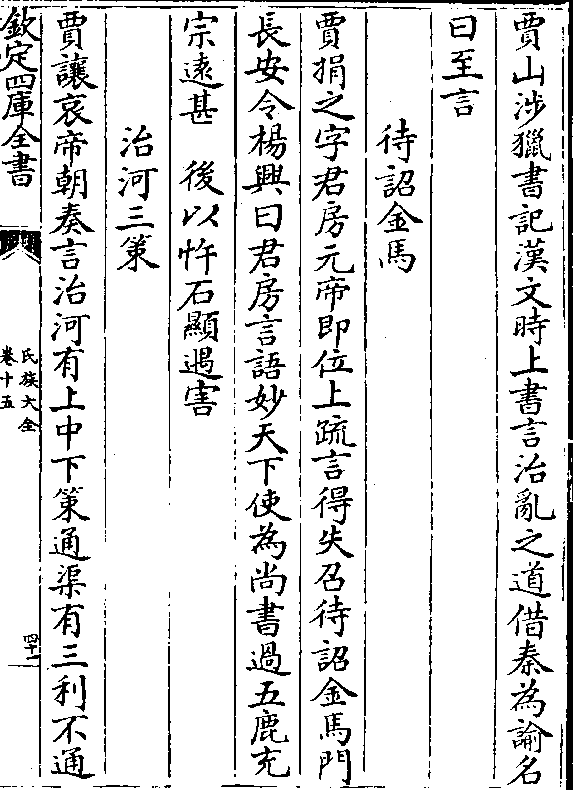 賈山涉獵書記漢文時上書言治亂之道借秦為諭名
曰至言
待詔金馬
賈捐之字君房元帝即位上疏言得失召待詔金馬門
長安令楊興曰君房言語妙天下使為尚書過五鹿充
宗逺甚　後以忤石顯遇害
治河三策
賈讓哀帝朝奏言治河有上中下策通渠有三利不通
欽定四庫全書
氏族大全
卷十五
四十一